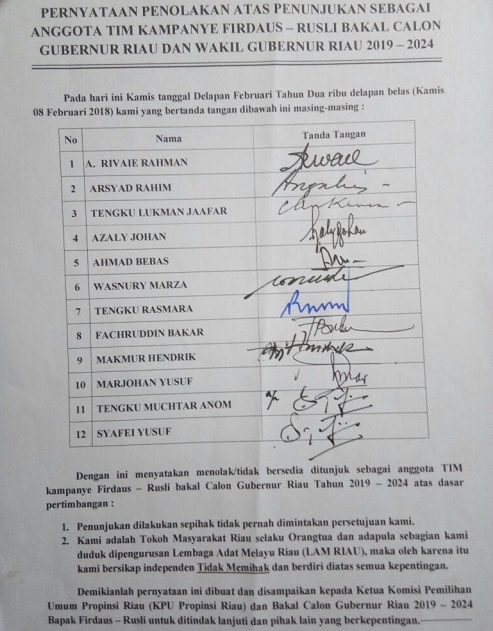 PERNYATAAN PENOLAKAN ATAS PENUNJUKAN SEBAGAI
ANGGOTA TIM KAMPANYE FIRDAUS – RUSLI BAKAL CALON
GUBERNUR RIAU DAN WAKIL GUBERNUR RIAU 2019 – 2024
Pada hari ini Kamis tanggal Delapan Februari Tahun Dua ribu delapan belas (Kamis
08 Februari 2018) kami yang bertanda tangan dibawah ini masing-masing :
No Nama Tanda Tangan
1 A. RIVAIE RAHMAN
2 ARSYAD RAHIM
3 TENGKU LUKMAN JAAFAR
4 AZALY JOHAN
5 AHMAD BEBAS
6 WASNURY MARZA
7 TENGKU RASMARA
8 FACHRUDDIN BAKAR
9 MAKMUR HENDRIK
10 MARJOHAN YUSUF
11 TENGKU MUCHTAR ANOM
12 SYAFEI YUSUF
Dengan ini menyatakan menolak/tidak bersedia ditunjuk sebagai anggota TIM
kampanye Firdaus – Rusli bakal Calon Gubernur Riau Tahun 2019 – 2024 atas dasar
pertimbangan :
1. Penunjukan dilakukan sepihak tidak pernah dimintakan persetujuan kami.
2. Kami adalah Tokoh Masyarakat Riau selaku Orangtua dan adapula sebagian kami
duduk dipengurusan Lembaga Adat Melayu Riau (LAM RIAU), maka oleh karena itu
kami bersikap independen Tidak Memihak dan berdiri diatas semua kepentingan.
Demikianlah pernyataan ini dibuat dan disampaikan kepada Ketua Komisi Pemilihan
Umum Propinsi Riau (KPU Propinsi Riau) dan Bakal Calon Gubernur Riau 2019 – 2024
Bapak Firdaus – Rusli untuk ditindak lanjuti dan pihak lain yang berkepentingan.